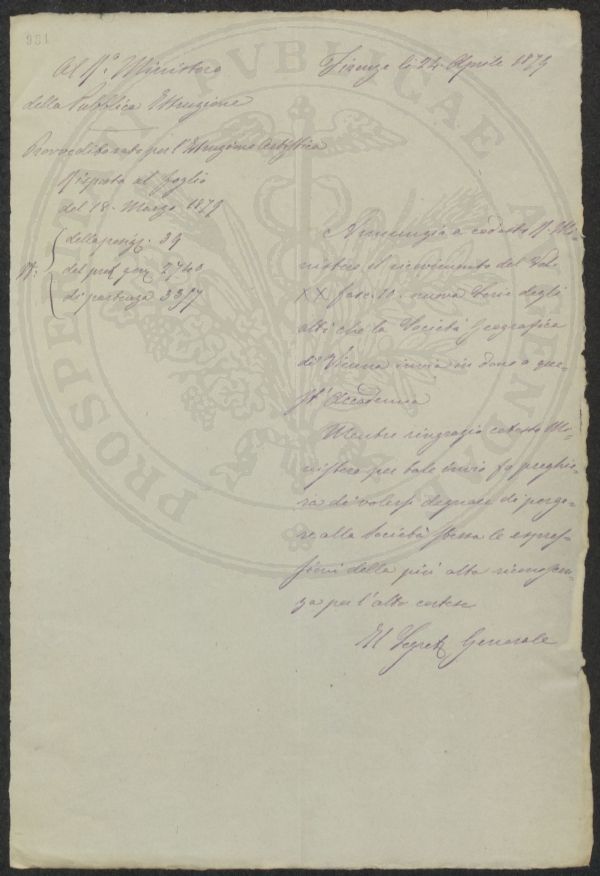 931
Al R.º Ministero
della Pubblica Istruzione
Firenze li 24 Aprile 1879
Provveditorato per l'Istruzione Artistica
Risposta al foglio
del 18. Marzo 1879
Nº:
della posiz. 39
del prot. gen. 2740
di partenza 3377
Annunzio a codesto R. Mi-
nistero il ricevimento del Vol.
XX fasc. 10. nuova Serie degli
atti che la Società Geografica
di Vienna invia in dono a que-
st'Accademia
Mentre ringrazio cotesto Mi-
nistero per tale invio fo preghie-
ra di volersi degnare di porge-
re alla Società stessa le espres-
sioni della più alta riconoscen-
za per l'atto cortese
Il Segret. Generale
PUBLICAE
PROSPERI